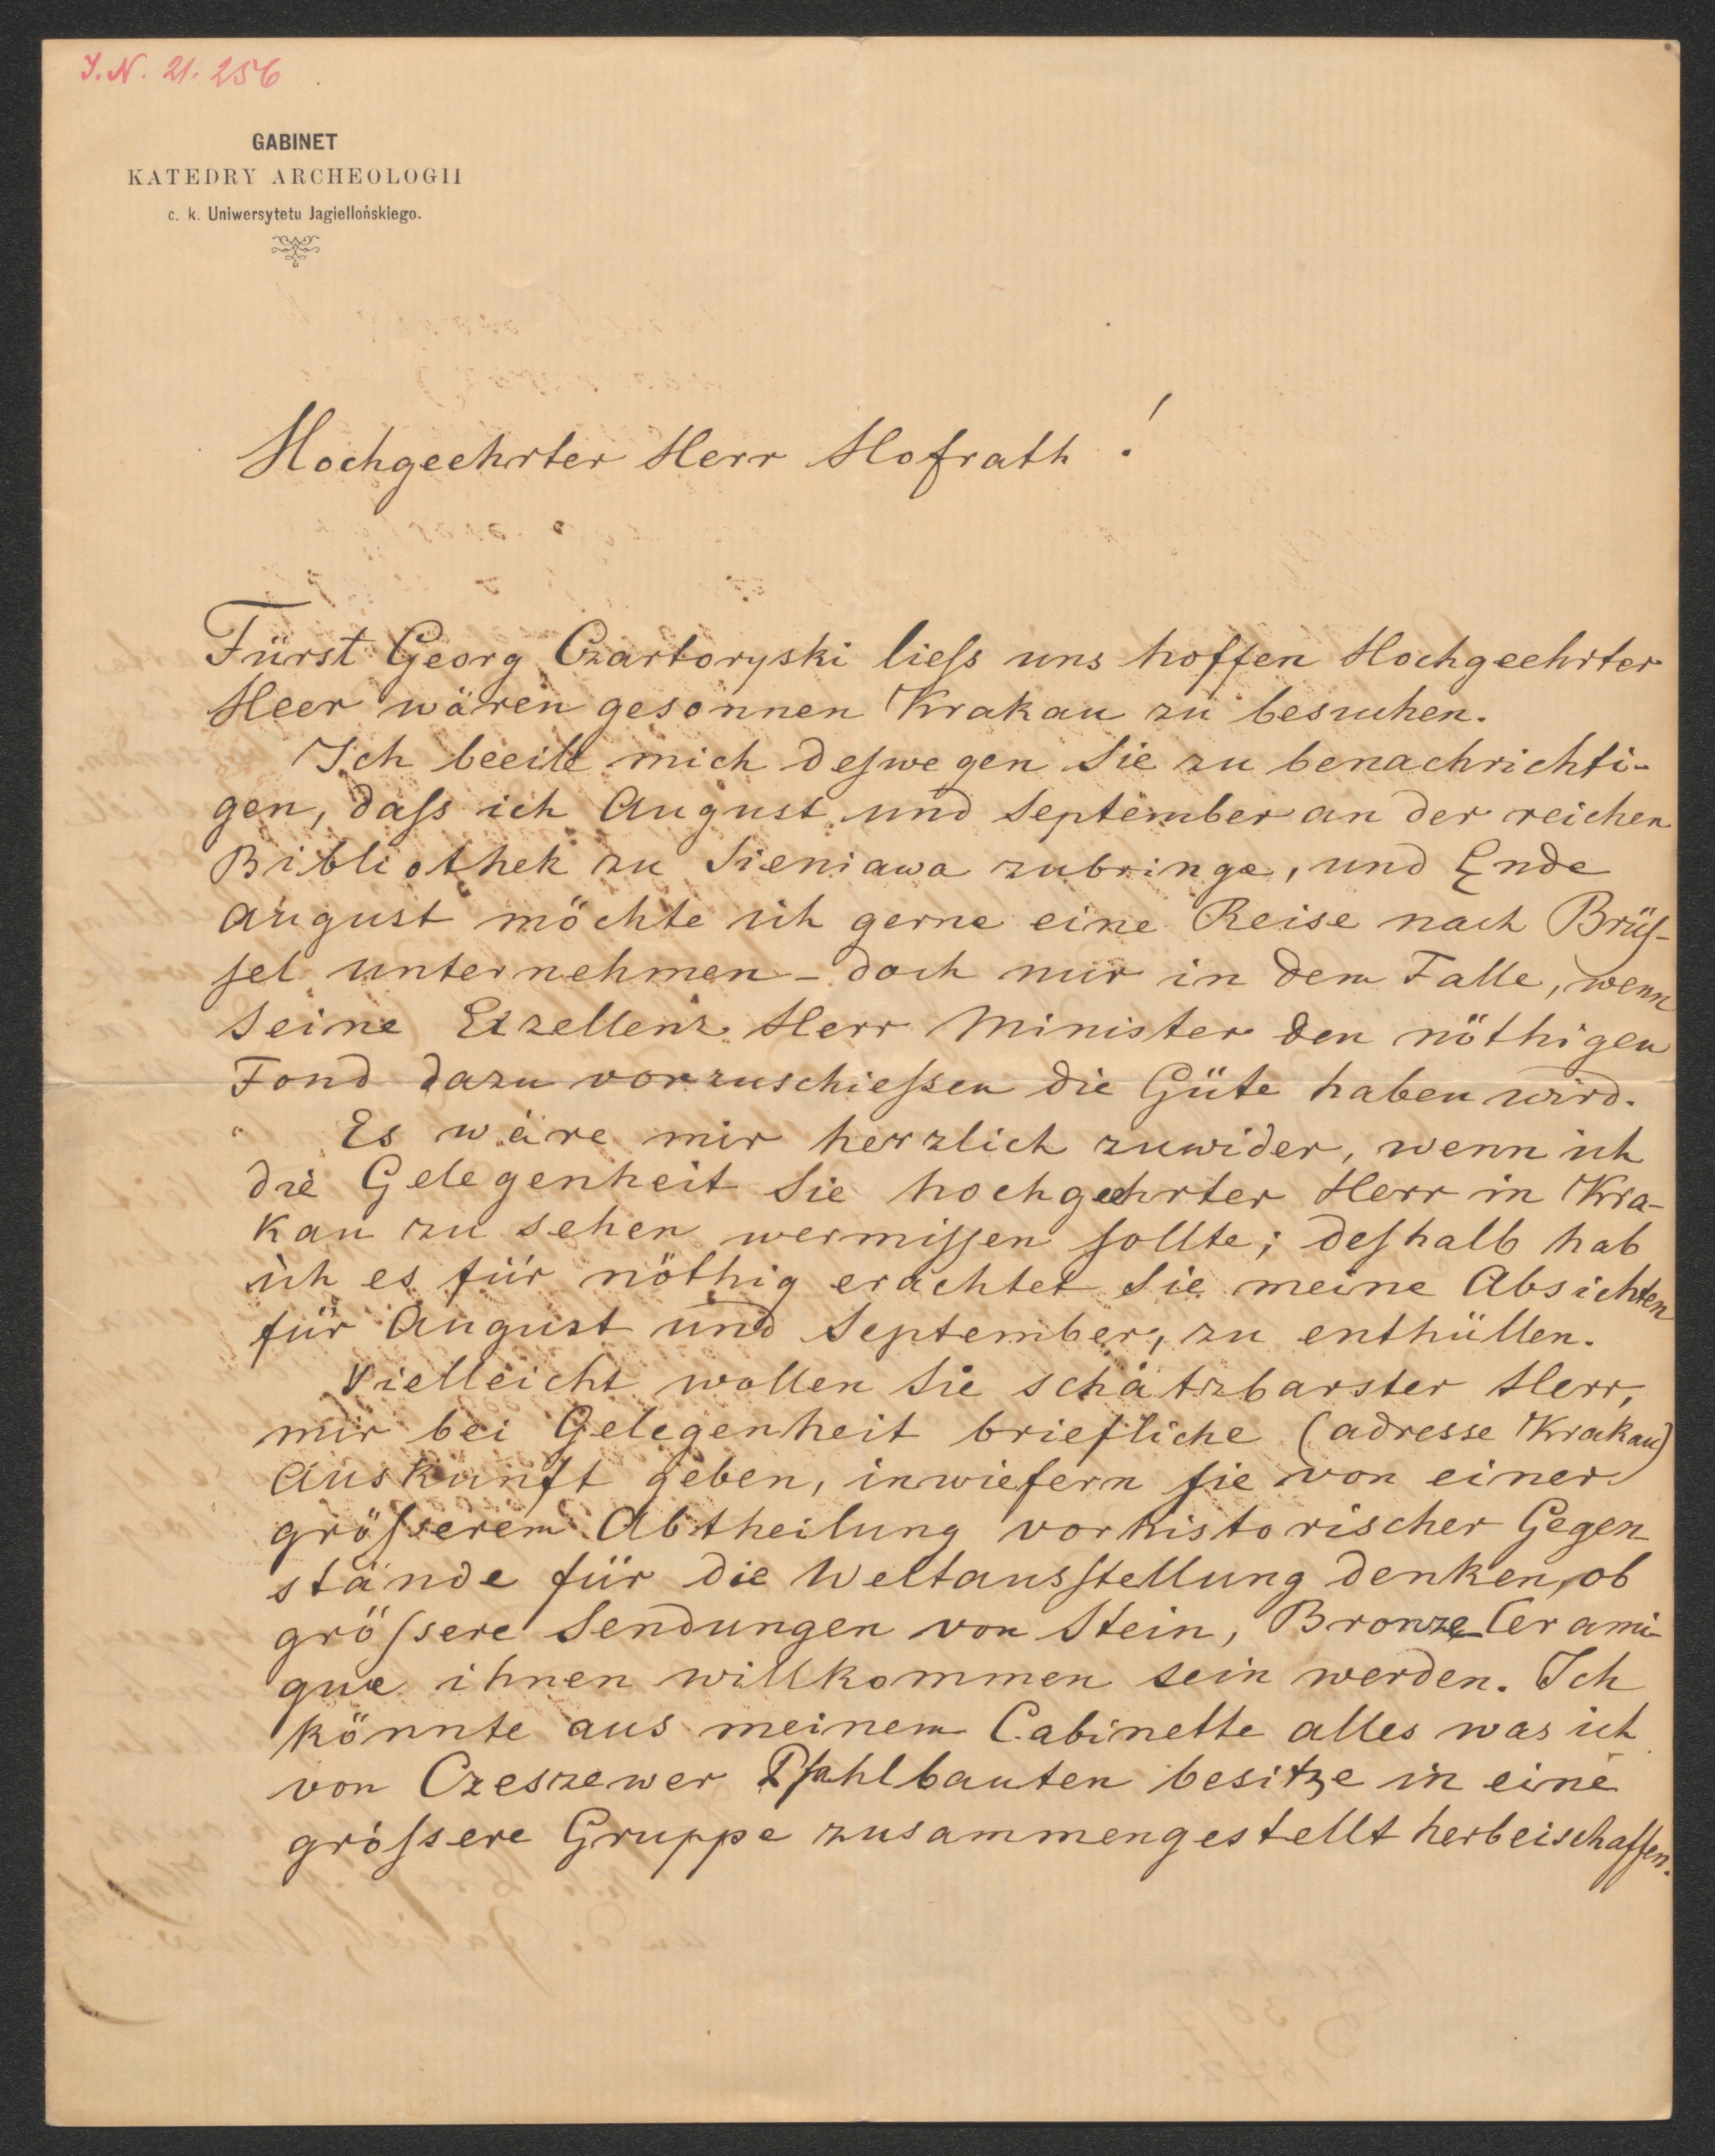 I. N. 21. 256
GABINET
KATEDRY ARCHEOLOGII
c. k. Uniwersytetu Jagiellońskiego.
Hochgeehrter Herr Hofrath!
Fürst Georg Czartoryski liess uns hoffen Hochgeehrter
Heer wären gesonnen Krakau zu besuchen.
Ich beeile mich desswegen Sie zu benachrichti-
gen, dass ich August und September an der reichen
Bibliothek zu Sieniawa zubringe, und Ende
August möchte ich gerne eine Reise nach Brüs-
sel unternehmen – doch nur in dem Falle, wenn
Seine Exzellenz Herr Minister den nöthigen
Fond dazu vorzuschiessen die Güte haben wird.
Es wäre mir herzlich zuwider, wenn ich
die Gelegenheit Sie hochgeehrter Herr in Kra-
kau zu sehen wermissen sollte; desshalb hab
ich es für nöthig erachtet Sie meine Absichten
für August und September, zu enthüllen.
Vielleicht wollen Sie schätzbarster Herr,
mir bei Gelegenheit briefliche (adresse Krakau)
Auskunft geben, inwiefern sie von einer
grösserem Abtheilung vorhistorischer Gegen
stände für die Weltausstellung denken, ob
grössere Sendungen von Stein, Bronze Cerami-
que ihnen willkommen sein werden. Ich
könnte aus meinem Cabinette alles was ich
von Czeszewer Pfahlbauten besitze in eine
grössere Gruppe zusammengestellt herbeischaffen.